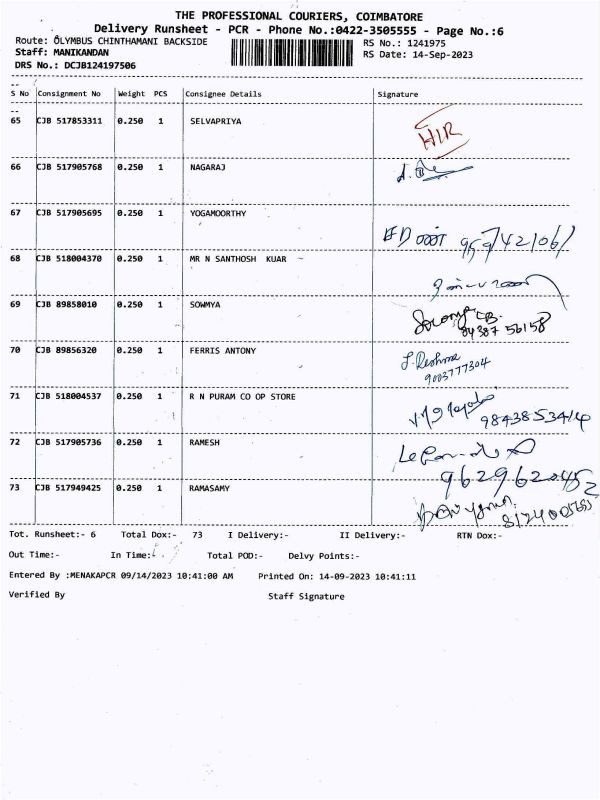 THE PROFESSIONAL COURIERS, COIMBATORE
Delivery Runsheet - PCR - Phone No.:0422-3505555 - Page No.:6
Route: OLYMBUS CHINTHAMANI BACKSIDE RS No.: 1241975
Staff: MANIKANDAN RS Date: 14-Sep-2023
DRS No.: DCJB124197506
S No Consignment No Weight PCS Consignee Details Signature
65 CJB 517853311 0.250 1 SELVAPRIYA
HIR
66 CJB 517905768 0.250 1 NAGARAJ
67 CJB 517905695 0.250 1 YOGAMOORTHY
68 CJB 518004370 0.250 1 MR N SANTHOSH KUAR
69 CJB 89858010 0.250 1 SOWMYA
84387 56158
70 CJB 89856320 0.250 1 FERRIS ANTONY
J. Reshma
9003777304
71 CJB 518004537 0.250 1 R N PURAM CO OP STORE
9843853414
72 CJB 517905736 0.250 1 RAMESH
9629620452
73 CJB 517949425 0.250 1 RAMASAMY
Tot. Runsheet:- 6 Total Dox:- 73 I Delivery:- II Delivery:- RTN Dox:-
Out Time:- In Time:- Total POD:- Delvy Points:-
Entered By :MENAKAPCR 09/14/2023 10:41:00 AM Printed On: 14-09-2023 10:41:11
Verified By Staff Signature